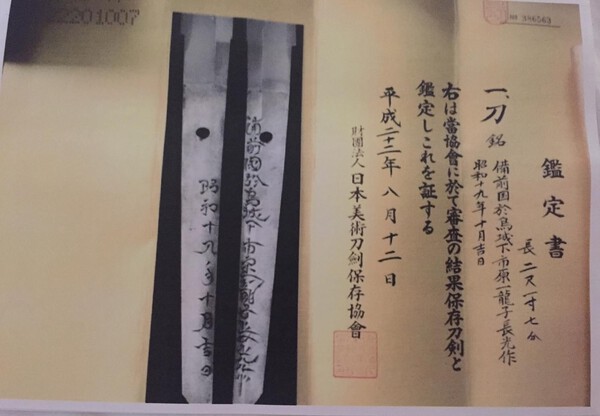 鑑定書
長 二尺一寸七分
一、刀 銘 備前国於烏城下市原一龍子長光作
昭和十九年十月吉日
右は當協會に於て審査の結果保存刀剣と
鑑定しこれを証する
平成二十二年八月十二日
財団法人 日本美術刀剣保存協會
備前国於烏城下市原一龍子長光作
昭和十九年十月吉日
2201007